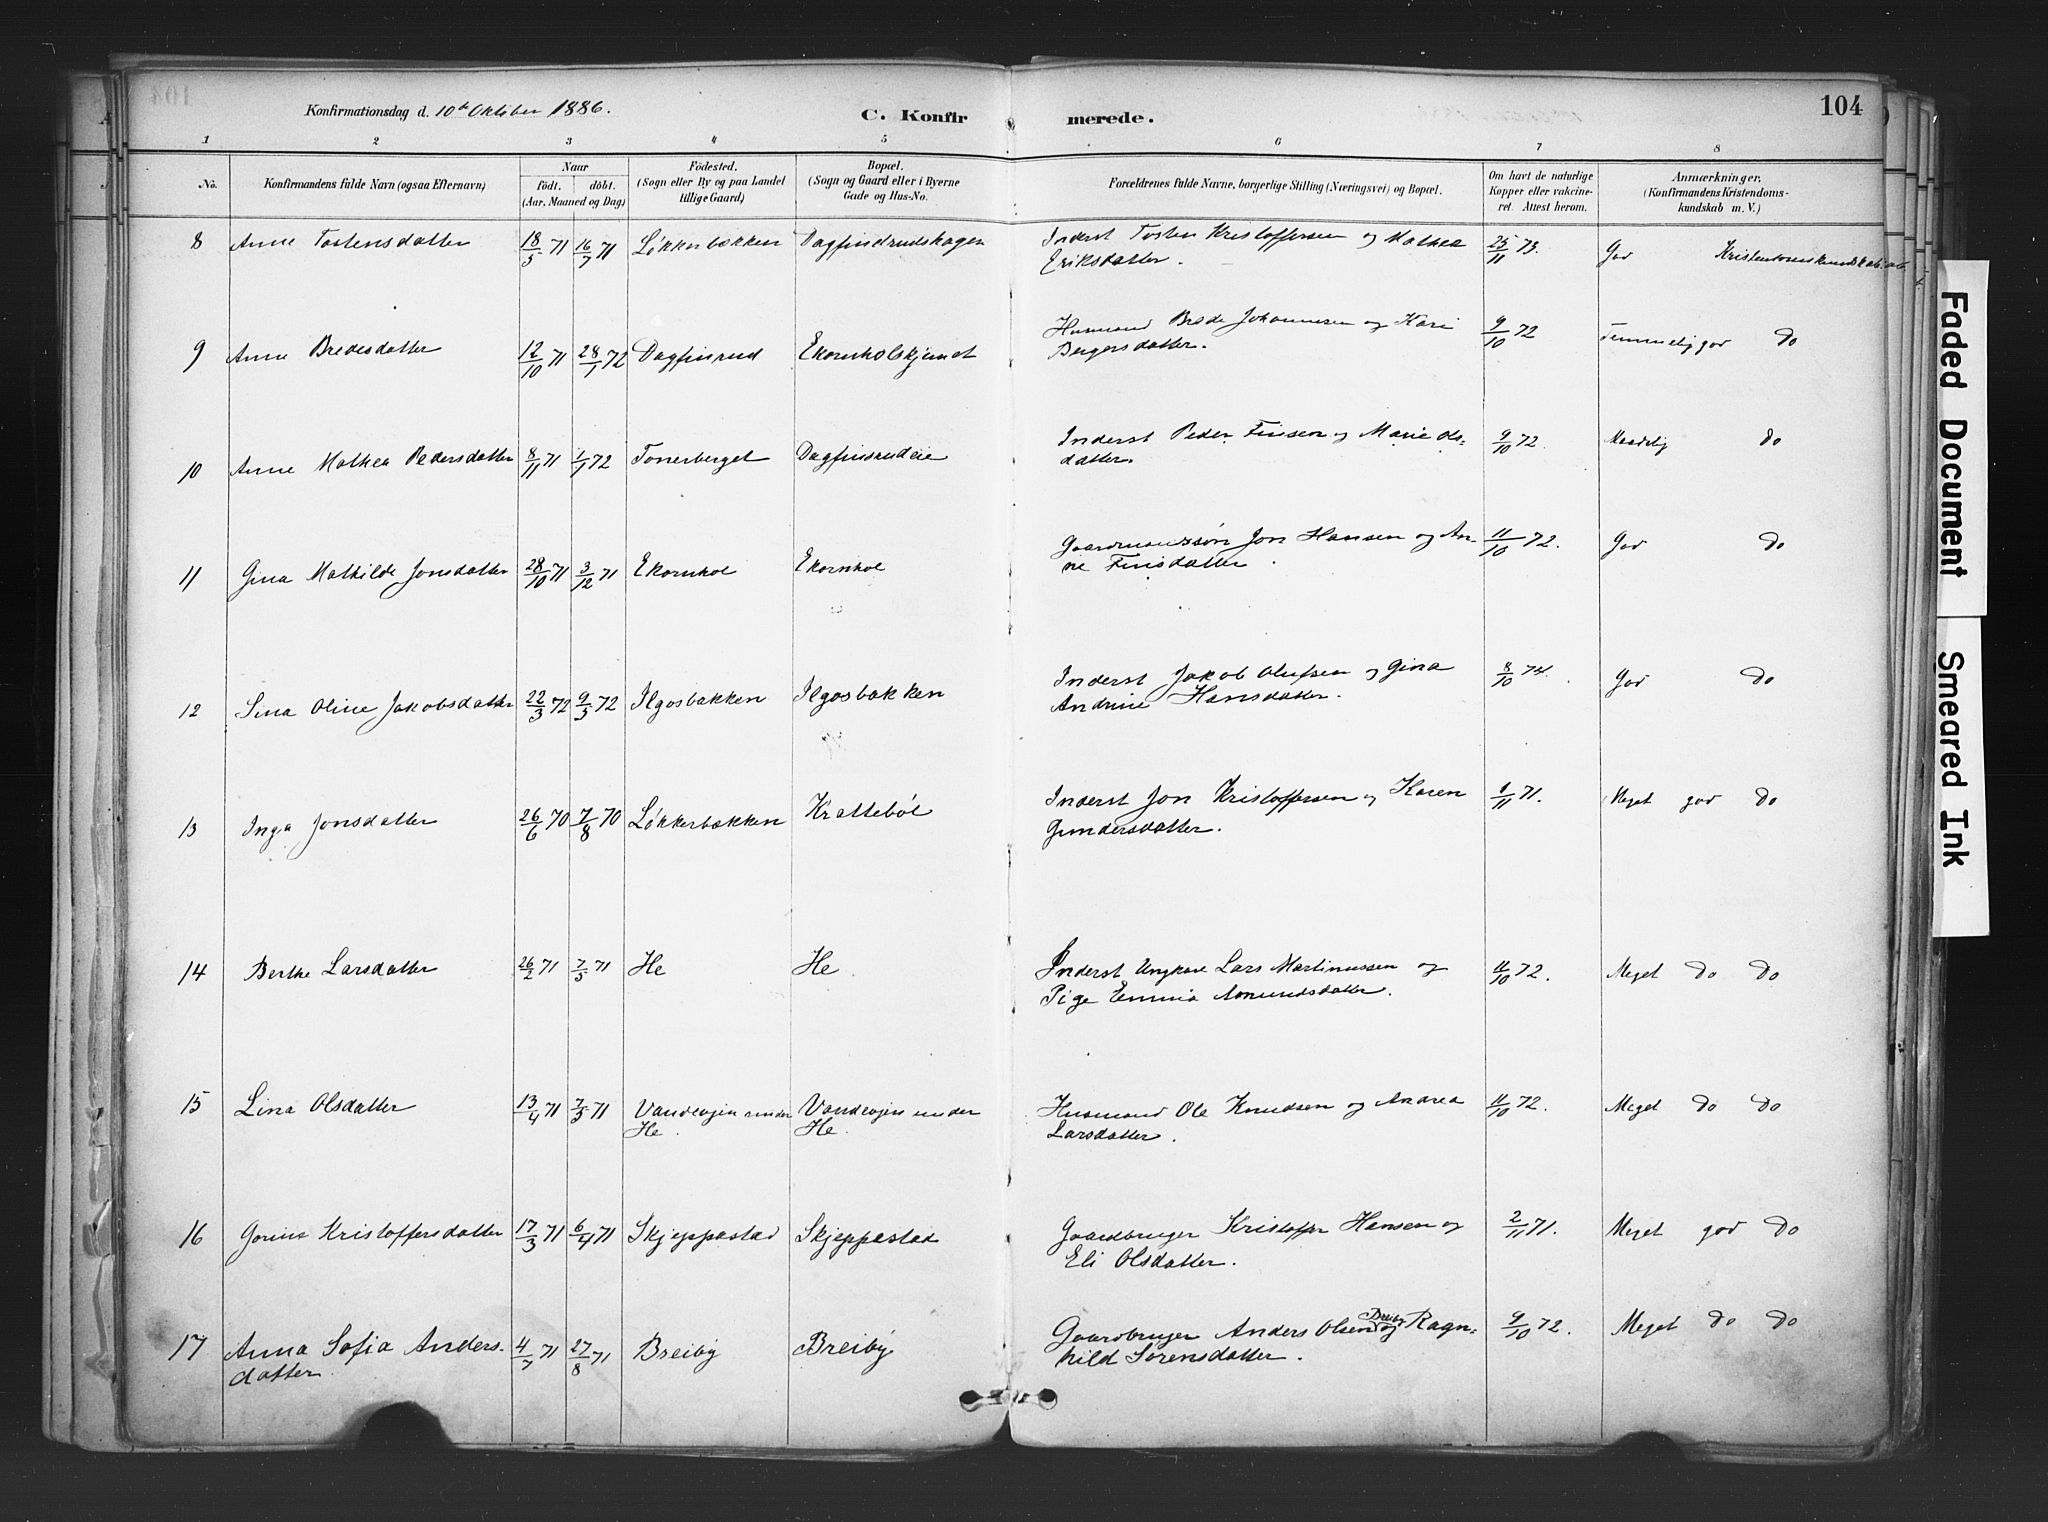 Konfirmationsdag d. 10de Oktober 1886. C. Konfirmerede. 104
1 2 3 4 5 6 7 8
No. Konfirmandens fulde Navn (ogsaa Efternavn) Naar født. døbt. (Aar, Maaned og Dag) Fødested. (Sogn eller By og paa Landet tillige Gaard) Bopæl. (Sogn og Gaard eller i Byerne Gade og Hus-No. Forældrenes fulde Navne, borgerlige Stilling (Næringsvei) og Bopæl. Om havt de naturlige Kopper eller vakcineret. Attest herom. Anmærkninger. (Konfirmandens Kristendomskundskab m. V.)
8 Anne Tostensdatter 18/5 71 16/7 71 Løkkerbækken Dagfindrudshagen Inderst Tosten Kristoffersen og Mathea 25/11 73. God Kristendomskundskab
Eriksdatter.
9 Anne Bredesdatter 12/10 71 28/1 72 Dagfinrud Ekornholskjernet Husmand Brede Johannesen og Kari 9/10 72 Temmelig god Do
Bergersdatter.
10 Anne Mathea Pedersdatter 8/11 71 1/1 72 Tonerberget Dagfinsrudeie Inderst Peder Finsen og Marie Ols- 9/10 72. Maadelig do
datter.
11 Gina Mathilde Jonsdatter 28/10 71 3/12 71 Ekornhol Ekornhol Gaardmandssøn Jon Hansen og An- 11/10 72. God Do
ne Finsdatter.
12 Lina Oline Jakobsdatter 22/3 72 9/5 72 Ilgosbakken Ilgosbakken Inderst Jakob Olufsen og Gina 8/10 74. God Do
Andrine Hansdatter.
13 Inga Jonsdatter 26/6 70 7/8 70 Løkkerbækken Krattebøl Inderst Jon Kristoffersen og Karen 1/11 71. Meget god Do
Gundersdatter.
14 Berthe Larsdatter 26/2 71 7/5 71 He He Inderst Ungkarl Lars Martinussen og 11/10 72. Meget Do Do
Pige Emmia Amundsdatter.
15 Lina Olsdatter 13/4 71 7/5 71 Vandvejen under Vandvejen under Husmand Ole Knudsen og Andrea 11/10 72. Meget Do Do
He. He. Larsdatter.
16 Gorine Kristoffersdatter 17/3 71 6/4 71 Skjeppestad Skjeppestad Gaardbruger Kristoffer Hansen og 2/11 71. Meget god Do
Eli Olsdatter.
17 Anna Sofia Anders- 4/7 71 27/8 71 Breiby Breiby Gaardbruger Anders Olsen Breiby og Ragn- 9/10 72. Meget Do Do
datter hild Sørensdatter.
Faded Document
Smeared Ink